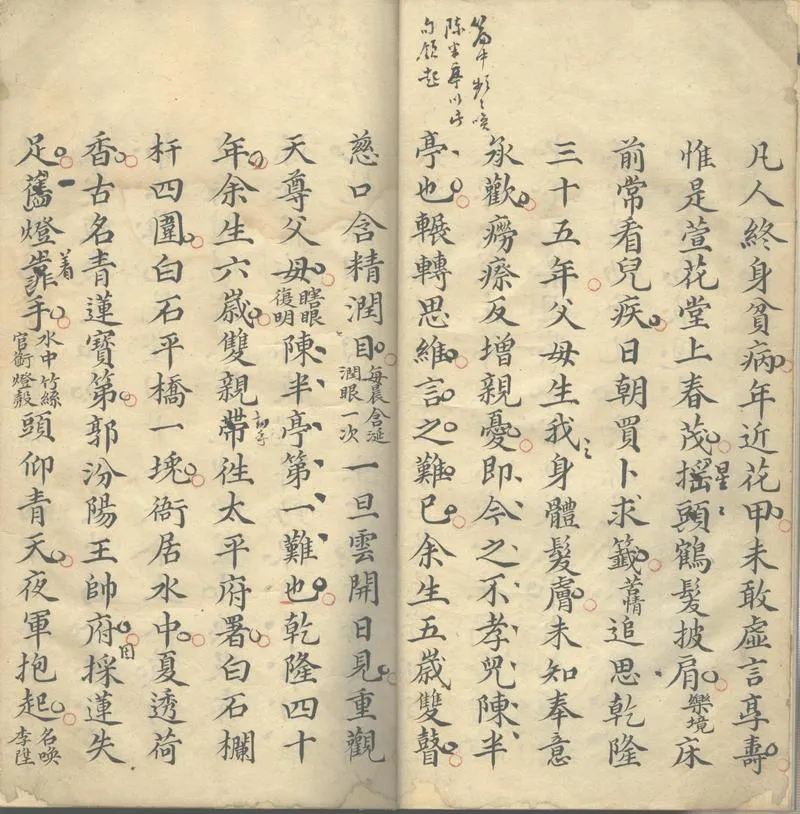 篇中點點喚
陳半亭以此
句領起
凡人終身貧病年近花甲未敢虛言享壽
惟是萱花堂上春茂搖頭鶴髮披肩樂境床
星星
前常看兒疾日朝買卜求籤苦情追思乾隆
三十五年父母生我身體髮膚未知奉意
承歡癆瘵反增親憂即今之不孝兒陳半
亭也輾轉思維言之難已余生五歲雙瞽
慈口含精潤目每晨含涎潤眼一次一旦雲開日見重觀
天尊父母瞎眼復明陳半亭第一難也乾隆四十
年余生六歲雙親帶徃太平府署白石欄
杆四圍白石平橋一塊衙居水中夏透荷
香古名青蓮寶第郭汾陽王帥府採蓮失
足舊燈靠手水中竹絲官銜燈殼頭仰青天夜軍抱起名喚李陞
着